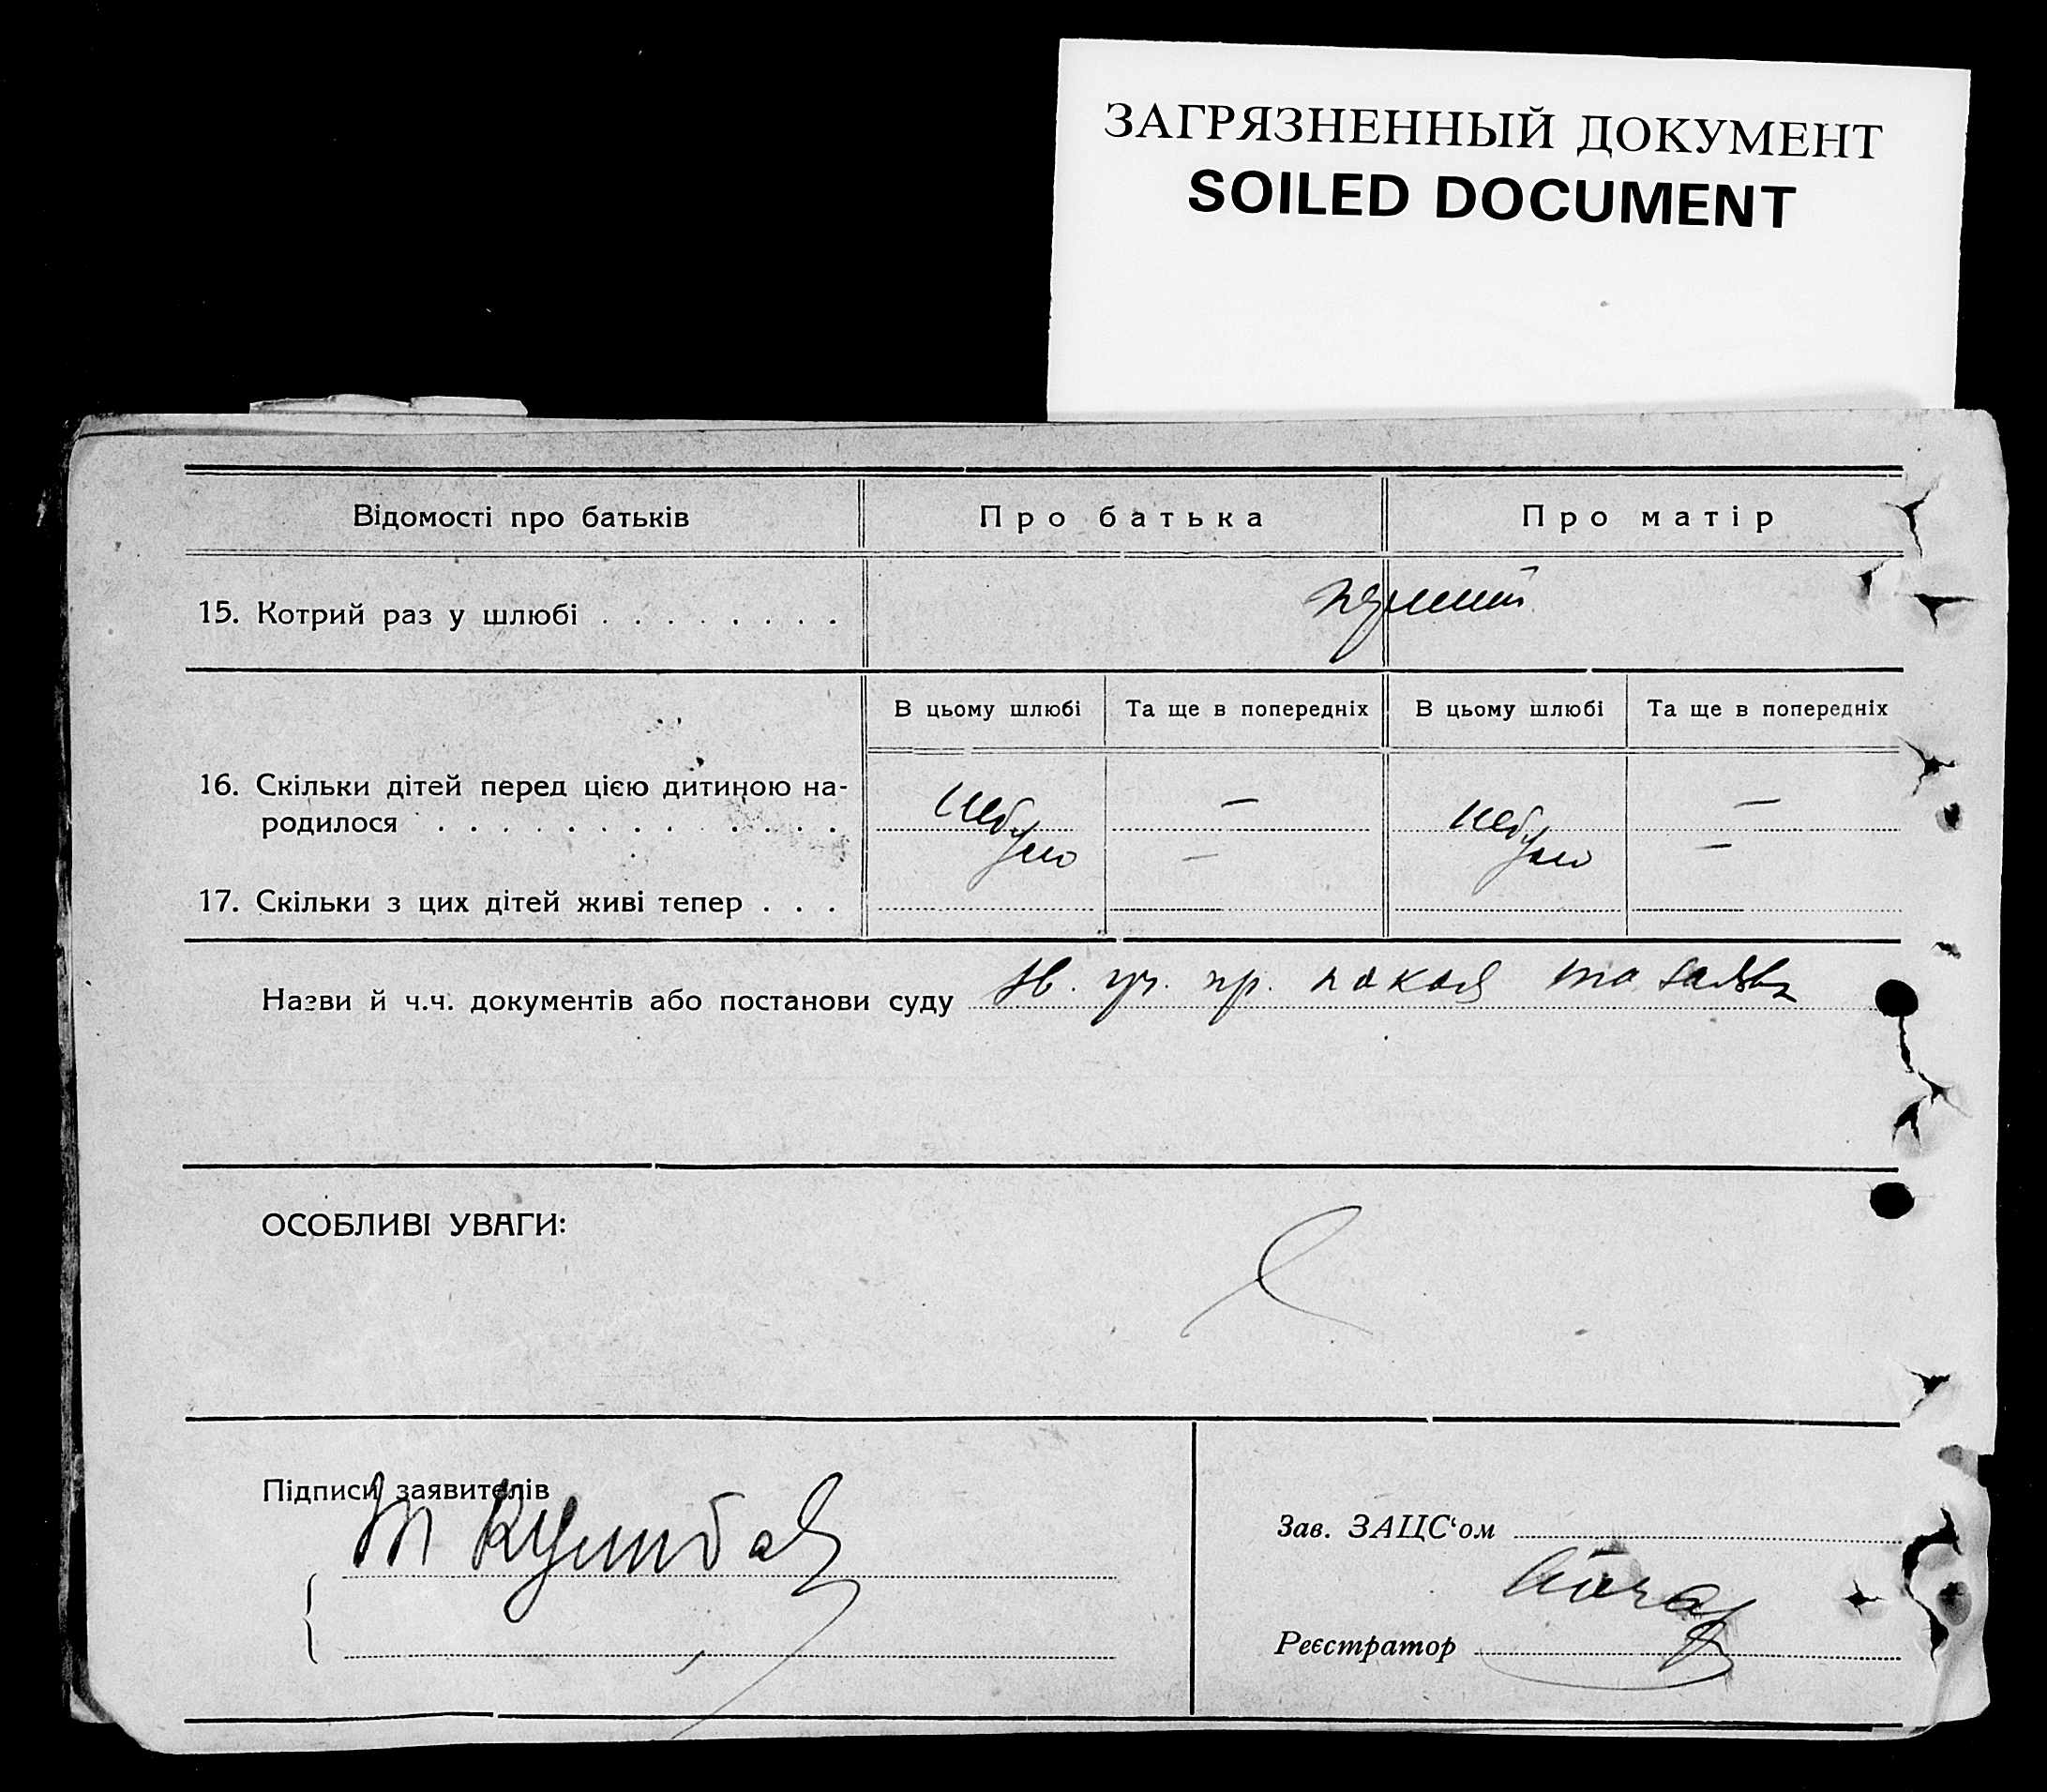 ЗАГРЯЗНЕННЫЙ ДОКУМЕНТ
SOILED DOCUMENT
Відомості про батьків Про батька Про матір
15. Котрий раз у шлюбі . . . . . . . . перший
В цьому шлюбі Та ще в попередніх В цьому шлюбі Та ще в попередніх
16. Скільки дітей перед цією дитиною на-
родилося . . . . . . . . . . . . . небуло — небуло —
17. Скільки з цих дітей живі тепер . . . — —
Назви й ч.ч. документів або постанови суду пр. та заява
ОСОБЛИВІ УВАГИ:
Підписи заявителів
Зав. ЗАЦС‘ом
Реєстратор